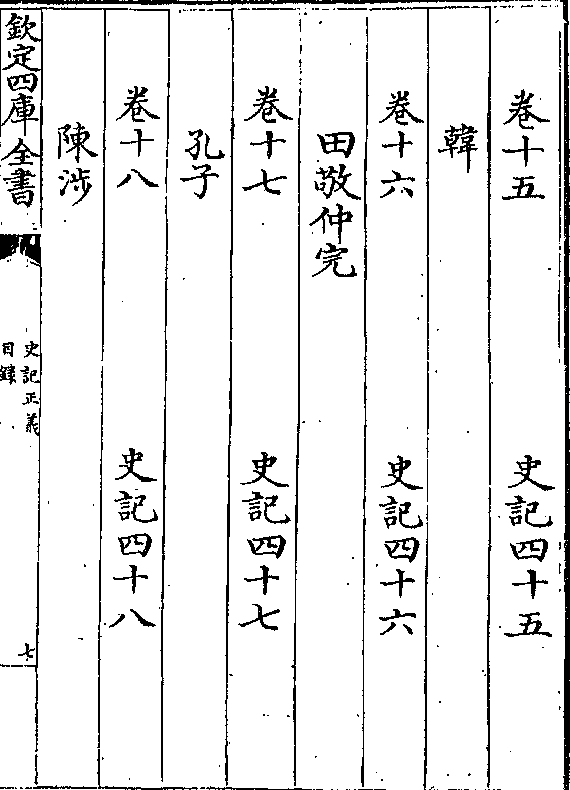 卷十五　史記四十五
韓
卷十六　史記四十六
田敬仲完
卷十七　史記四十七
孔子
卷十八　史記四十八
陳涉
欽定四庫全書
史記正義
目錄
七